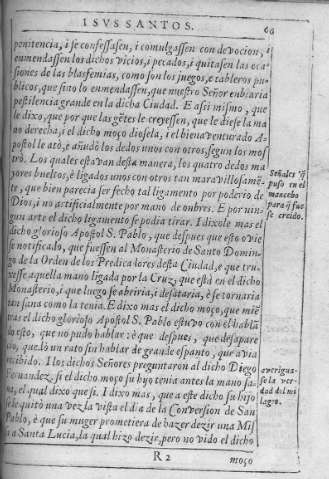 ISVS SANTOS. 66
penitencia, i se confessassen, i comulgassen con devocion, i
enmendassen los dichos vicios, i pecados, i quitasen las oca-
siones de las blasfemias, como son los juegos, e tableros pu-
blicos, que si no lo enmendassen, que nuestro Señor enbiaria
pestilencia grande en la dicha Ciudad. E assi mismo, que
le dixo, que por que las gẽtes le creyessen, que le diese la ma
no derecha; i el dicho moço diosela, i el bienaventurado A-
postol le atò, e añudò los dedos unos con otros, segun los mos
trò. Los quales estavan desta manera, los quatro dedos ma
yores bueltos, è ligados unos con otros tan maravillosamẽ-
te, que bien parecia ser fecho tal ligamento por poderio de
Dios, i no artificialmente por mano de onbres. E por nin-
gun arte el dicho ligamento se podia tirar. I dixole mas el
dicho glorioso Apostol S. Pablo, que despues que esto ovie
se notificado, que fuessen al Monesterio de Santo Domin-
go de la Orden de los Predicadores desta Ciudad, e que tru-
xesse aquella mano ligada por la Cruz, que està en el dicho
Monasterio, i que luego se abriria, i desataria, è se tornaria
tan sana como la tenia. E dixo mas el dicho moço, que miẽ
tras el dicho glorioso Apostol S. Pablo estuvo con el habla
do esto, que no pudo hablar: è que despues, que desapare
cio, quedò un rato sin hablar de grande espanto, que avia
recibido. I los dichos Señores preguntaron al dicho Diego
Fernandez, si el dicho moço su hijo tenia antes la mano sa-
na, el qual dixo que si. I dixo mas, que a este dicho su hijo
se le quitò una vez la vista el dia de la Conversion de San
Pablo, è que su muger prometiera de hazer dezir una Mis
sa a Santa Lucia, la qual hizo dezir, pero no vido el dicho
R 2 moço
Señales q̃
puso en el
mancebo
para q̃ fue
se creido.
averigua-
se la ver-
dad del mi
lagro.